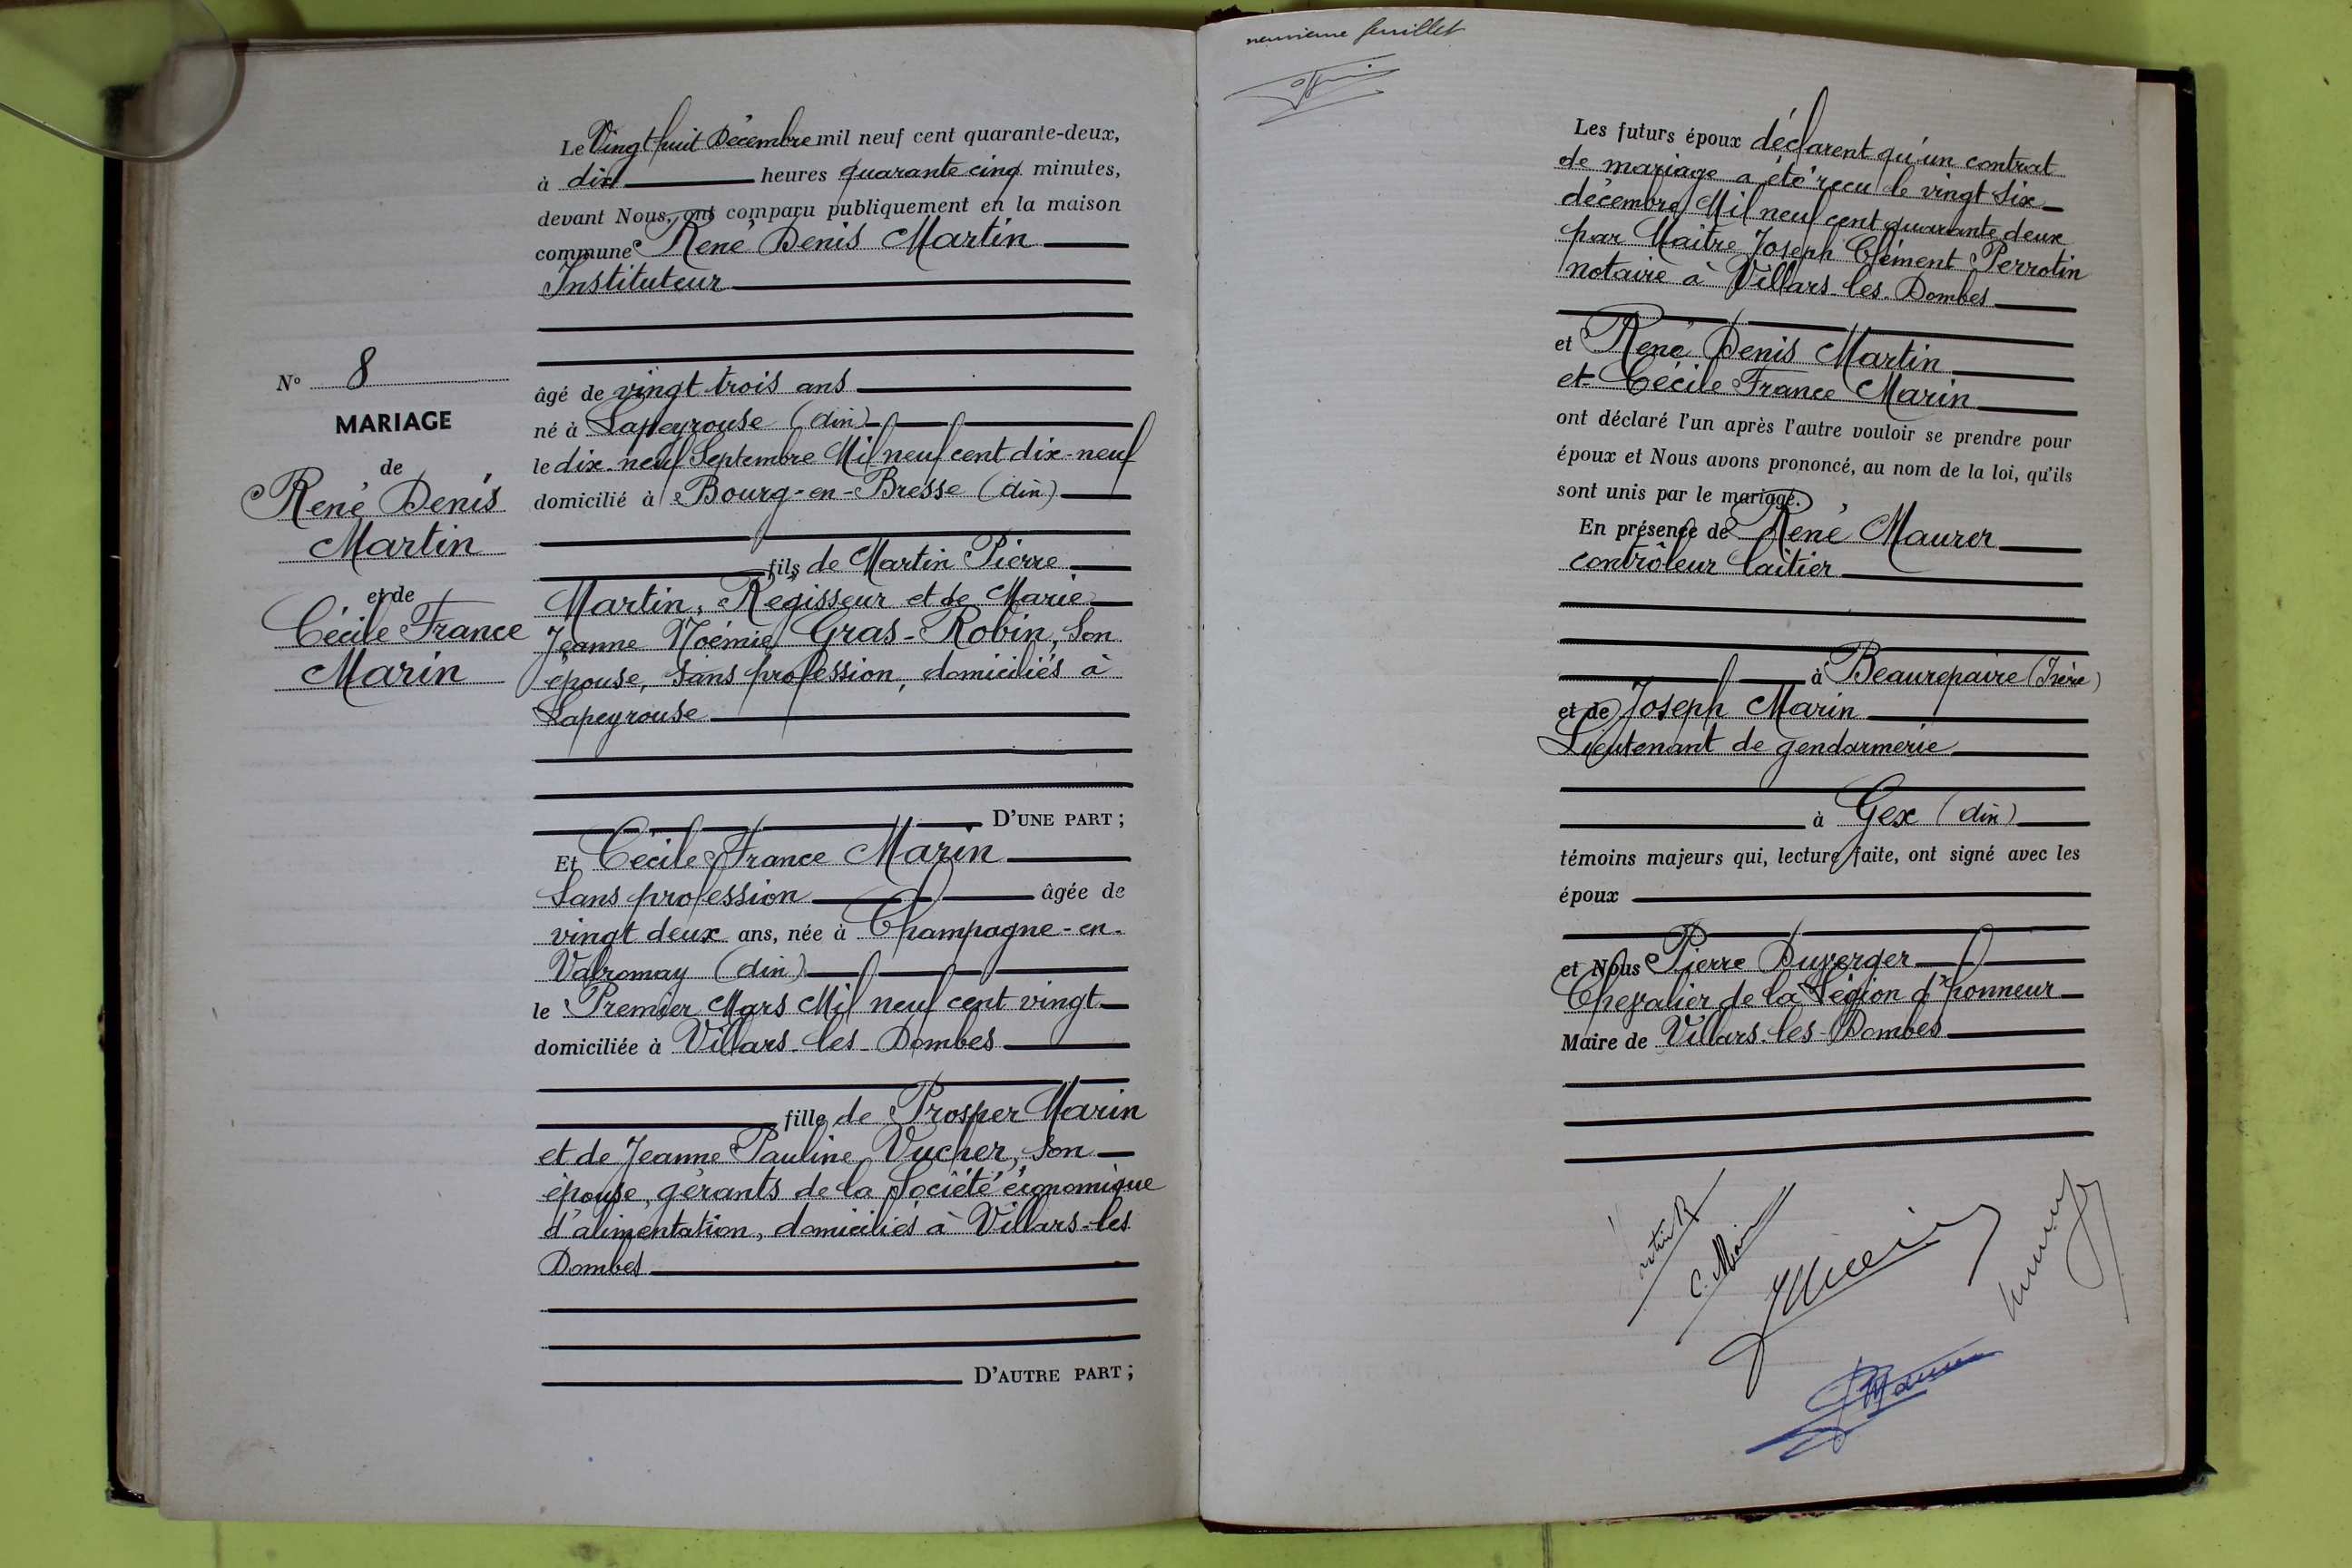 Le Vingt huit Décembre mil neuf cent quarante-deux,
à dix heures quarante cinq minutes,
devant Nous, ont comparu publiquement en la maison
commune René Denis Martin
Instituteur
âgé de vingt trois ans
né à Lapeyrouse (Ain)
le dix-neuf Septembre Mil neuf cent dix-neuf
domicilié à Bourg-en-Bresse (Ain)
fils de Martin Pierre
Martin, Régisseur et de Marie
Jeanne Noémie Gras-Robin, son
épouse, sans profession, domiciliés à
Lapeyrouse
D'UNE PART ;
Et Cécile France Marin
Sans profession âgée de
vingt deux ans, née à Champagne-en-
Valromay (Ain)
le Premier Mars Mil neuf cent vingt
domiciliée à Villars-les-Dombes
fille de Prosper Marin
et de Jeanne Pauline Vucher, son
épouse, gérants de la Société économique
d'alimentation, domiciliés à Villars-les
Dombes
D'AUTRE PART ;
N° 8
MARIAGE
de
René Denis
Martin
et de
Cécile France
Marin
neuvième feuillet
Les futurs époux déclarent qu'un contrat
de mariage a été reçu le vingt six
décembre Mil neuf cent quarante deux
par Maitre Joseph Clément Perrotin
notaire à Villars-les-Dombes
et René Denis Martin
et Cécile France Marin
ont déclaré l'un après l'autre vouloir se prendre pour
époux et Nous avons prononcé, au nom de la loi, qu'ils
sont unis par le mariage.
En présence de René Maurer
contrôleur laitier
à Beaurepaire (Isère)
et de Joseph Marin
Lieutenant de gendarmerie
à Gex (Ain)
témoins majeurs qui, lecture faite, ont signé avec les
époux
et Nous Pierre Duverger
Chevalier de la Légion d'honneur
Maire de Villars-les-Dombes
C. Marin